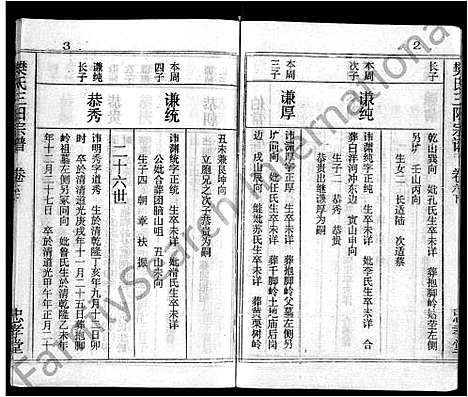 2
樊氏三阳宗谱 卷六下
长子
乾山巽向 妣孔氏生卒未详 葬抱脚岭姑茔左侧
另圹 壬山丙向
生女二 长适陆 次适蔡
本周
次子
谦纯
讳渊纯字纯正 生卒未详 妣李氏生卒未详 合
葬白洋河冲东边 寅山申向
生子二 恭秀 恭贵
恭贵出继谦厚为嗣
本周
三子
谦厚
讳渊厚字正厚 生卒未详 葬抱脚岭父墓左侧另
圹 戌山辰向 继妣苏氏生卒未详 葬黄栗树岭
边 妣任氏生卒未详 葬千脚岭土地庙后岗
3
丑未兼艮坤向
立胞兄之次子恭贵为嗣
本周
四子
谦统
讳渊统字正统 生卒未详 妣滑氏生卒未详
公妣合葬团脑山咀 丑山未向
生子四 朝 章 扶 振
二十六世
谦纯
长子
恭秀
讳明秀字道秀 生於清乾隆丁亥年九月十三日卯
时 卒於清道光庚戌年十一月二十五日葬抱脚
岭祖墓左侧另冢同向 妣鲁氏生於清乾隆乙未年
年十二月二十七日 卒於清道光甲午年正月二十
樊氏三阳宗谱 卷六下
忠孝堂
FamilySearch International